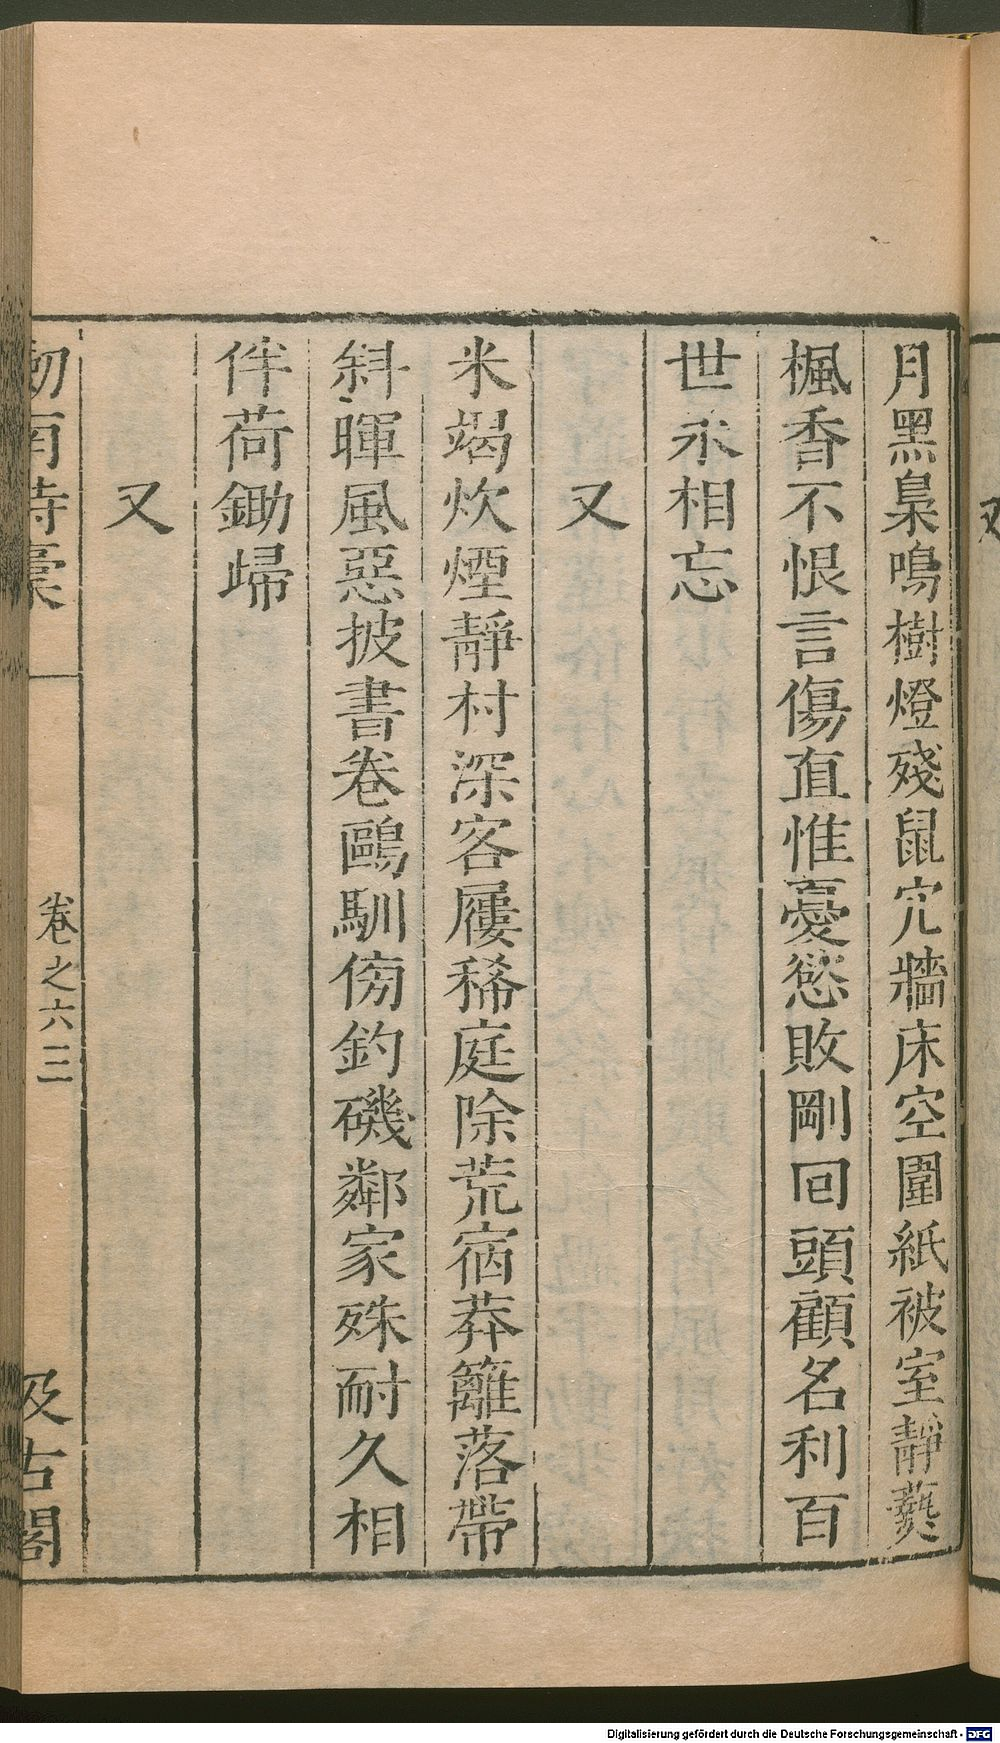 月黑梟鳴樹燈殘鼠穴牆床空圍紙被室靜爇
楓香不恨言傷直惟憂慾敗剛回頭顧名利百
世永相忘
又
米竭炊煙靜村深客屨稀庭除荒宿莽籬落帶
斜暉風惡披書卷鷗馴傍釣磯鄰家殊耐久相
伴荷鋤歸
又
劎南詩稾
卷之六三
汲古閣
Digitalisierung gefördert durch die Deutsche Forschungsgemeinschaft - DFG